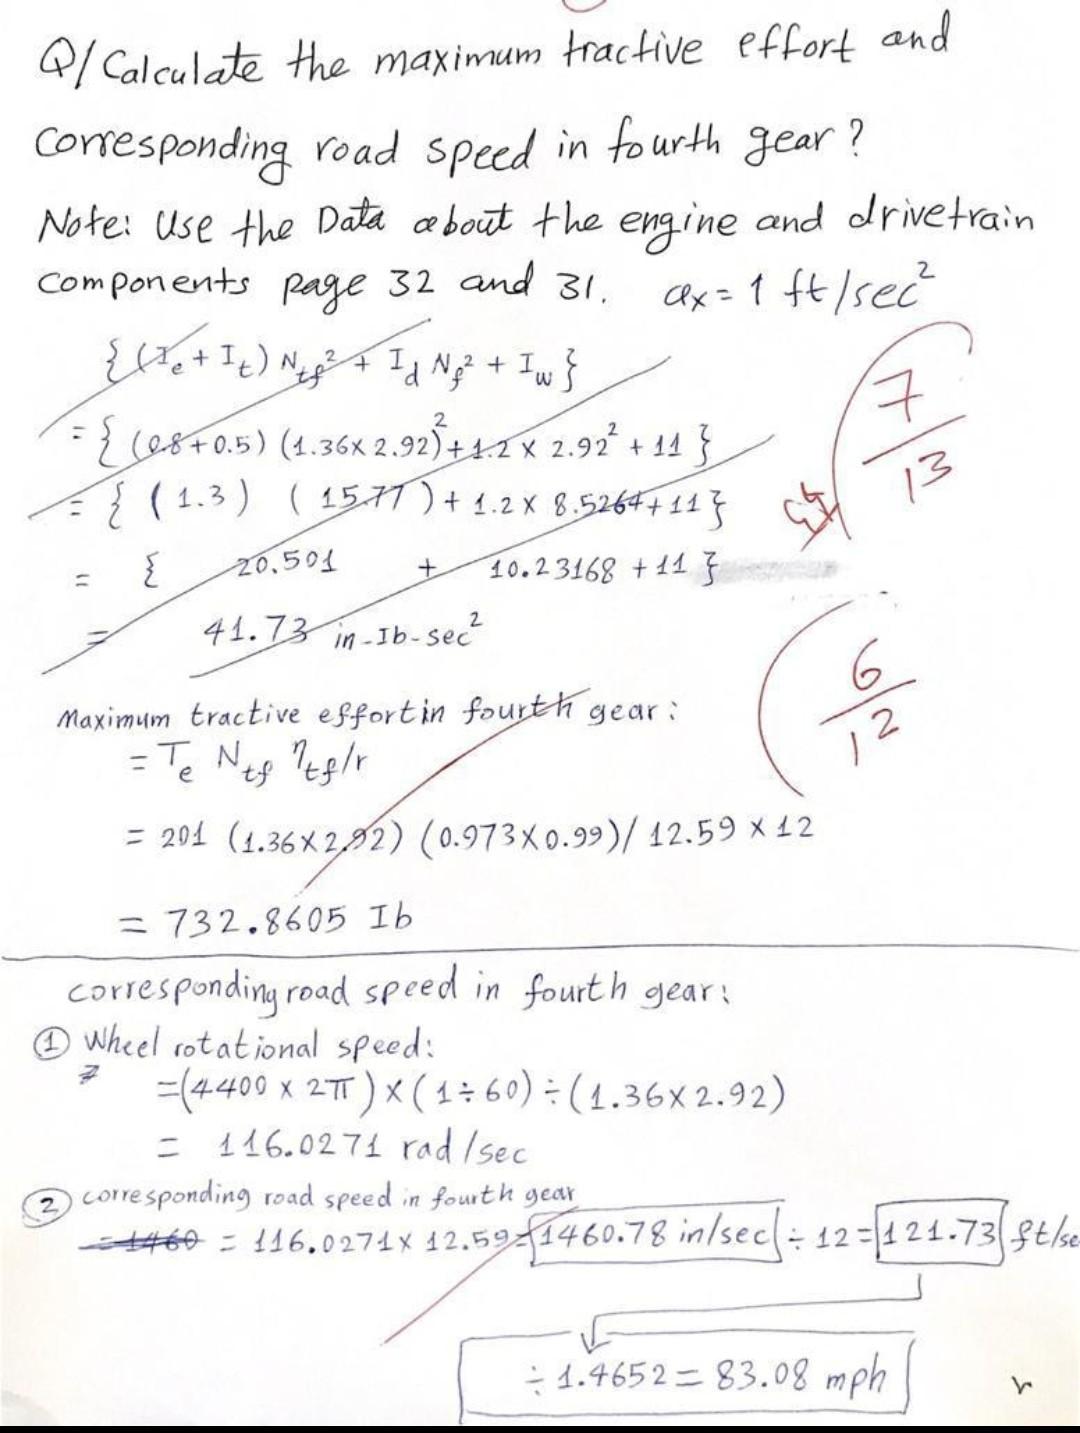 Q/ Calculate the maximum tractive effort and
corresponding road speed in fourth gear?
Note: Use the Data about the engine and drivetrain
components page 32 and 31. ax = 1 ft/sec²
{(Ie + It) Ntf² + Id Nf² + Iw}
= {(0.8+0.5) (1.36×2.92)² + 1.2 × 2.92² + 11}
= {(1.3) (15.77) + 1.2 × 8.5264 + 11}
= { 20.501 + 10.23168 + 11}
= 41.73 in-Ib-sec²
7/13
6/12
Maximum tractive effort in fourth gear:
= Te Ntf ηtf/r
= 201 (1.36×2.92) (0.973×0.99)/ 12.59 × 12
= 732.8605 Ib
corresponding road speed in fourth gear:
① Wheel rotational speed:
=(4400 × 2π) × (1÷60) ÷ (1.36×2.92)
= 116.0271 rad/sec
② corresponding road speed in fourth gear
= 1460 = 116.0271 × 12.59 = 1460.78 in/sec ÷ 12 = 121.73 ft/se
÷ 1.4652 = 83.08 mph